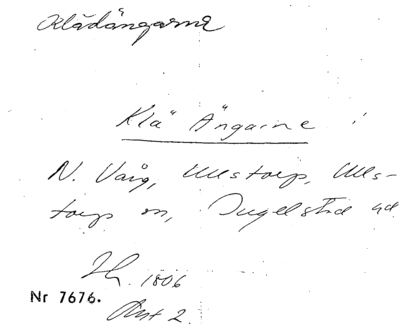 Klädängarne
Klä Ängarne :
N. Vång, Ullstorp, Ulls-
torp sn, Ingelstad hd
1806
Nr 7676.
Akt 2.